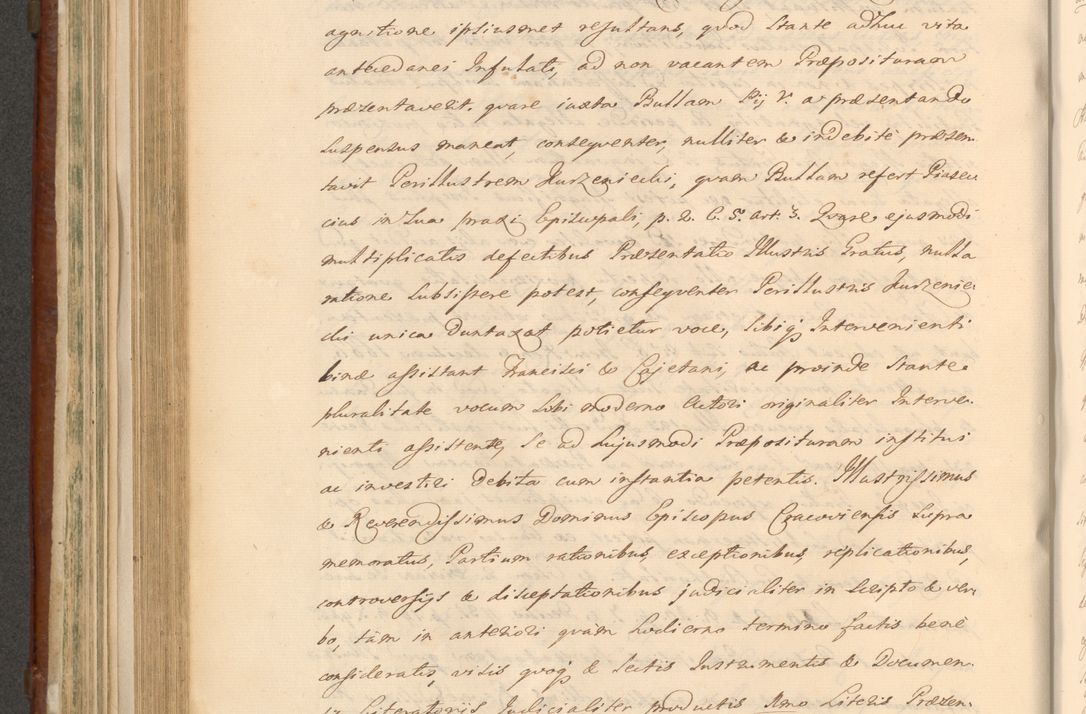 agnitione ipsiusmet resultans, quod stante adhuc vita
antecedanei Infulati, ad non vacantem Præposituram
præsentaverit. quare iuxta Bullam Pij V. a præsentando
suspensus maneat, conseqventer, nulliter & indebitè præsen
tavit Perillustrem Kurzeniecki, quam Bullam refert Piasec
cius in sua praxi Episcopali, p. 2. C. 5. art. 3. Quare ejusmodi
multiplicatis defectibus Præsentatio Illustris Gratus, nulla
ratione subsistere potest, conseqventer Perillustris Kurzenie
cki unica duntaxat potietur voce, sibiq; Intervenienti
binæ assistant Francisci & Cajetani, ac proinde stante
pluralitate vocum sibi moderno Actori originaliter Interve
nienti assistente, se ad hujusmodi Præposituram institui
ac investiri debita cum instantia petentis. Illustrissimus
& Reverendissimus Dominus Episcopus Cracoviensis supra
memoratus, Partium rationibus, exceptionibus, replicationibus,
controversijs & disceptationibus judicialiter in scripto & ver
bo, tàm in anteriori quàm hodierno termino factis benè
consideratis, visis quoq; & lectis Instrumentis & Documen
Literatorijs Judicialiter productis Imo Literis Præsen